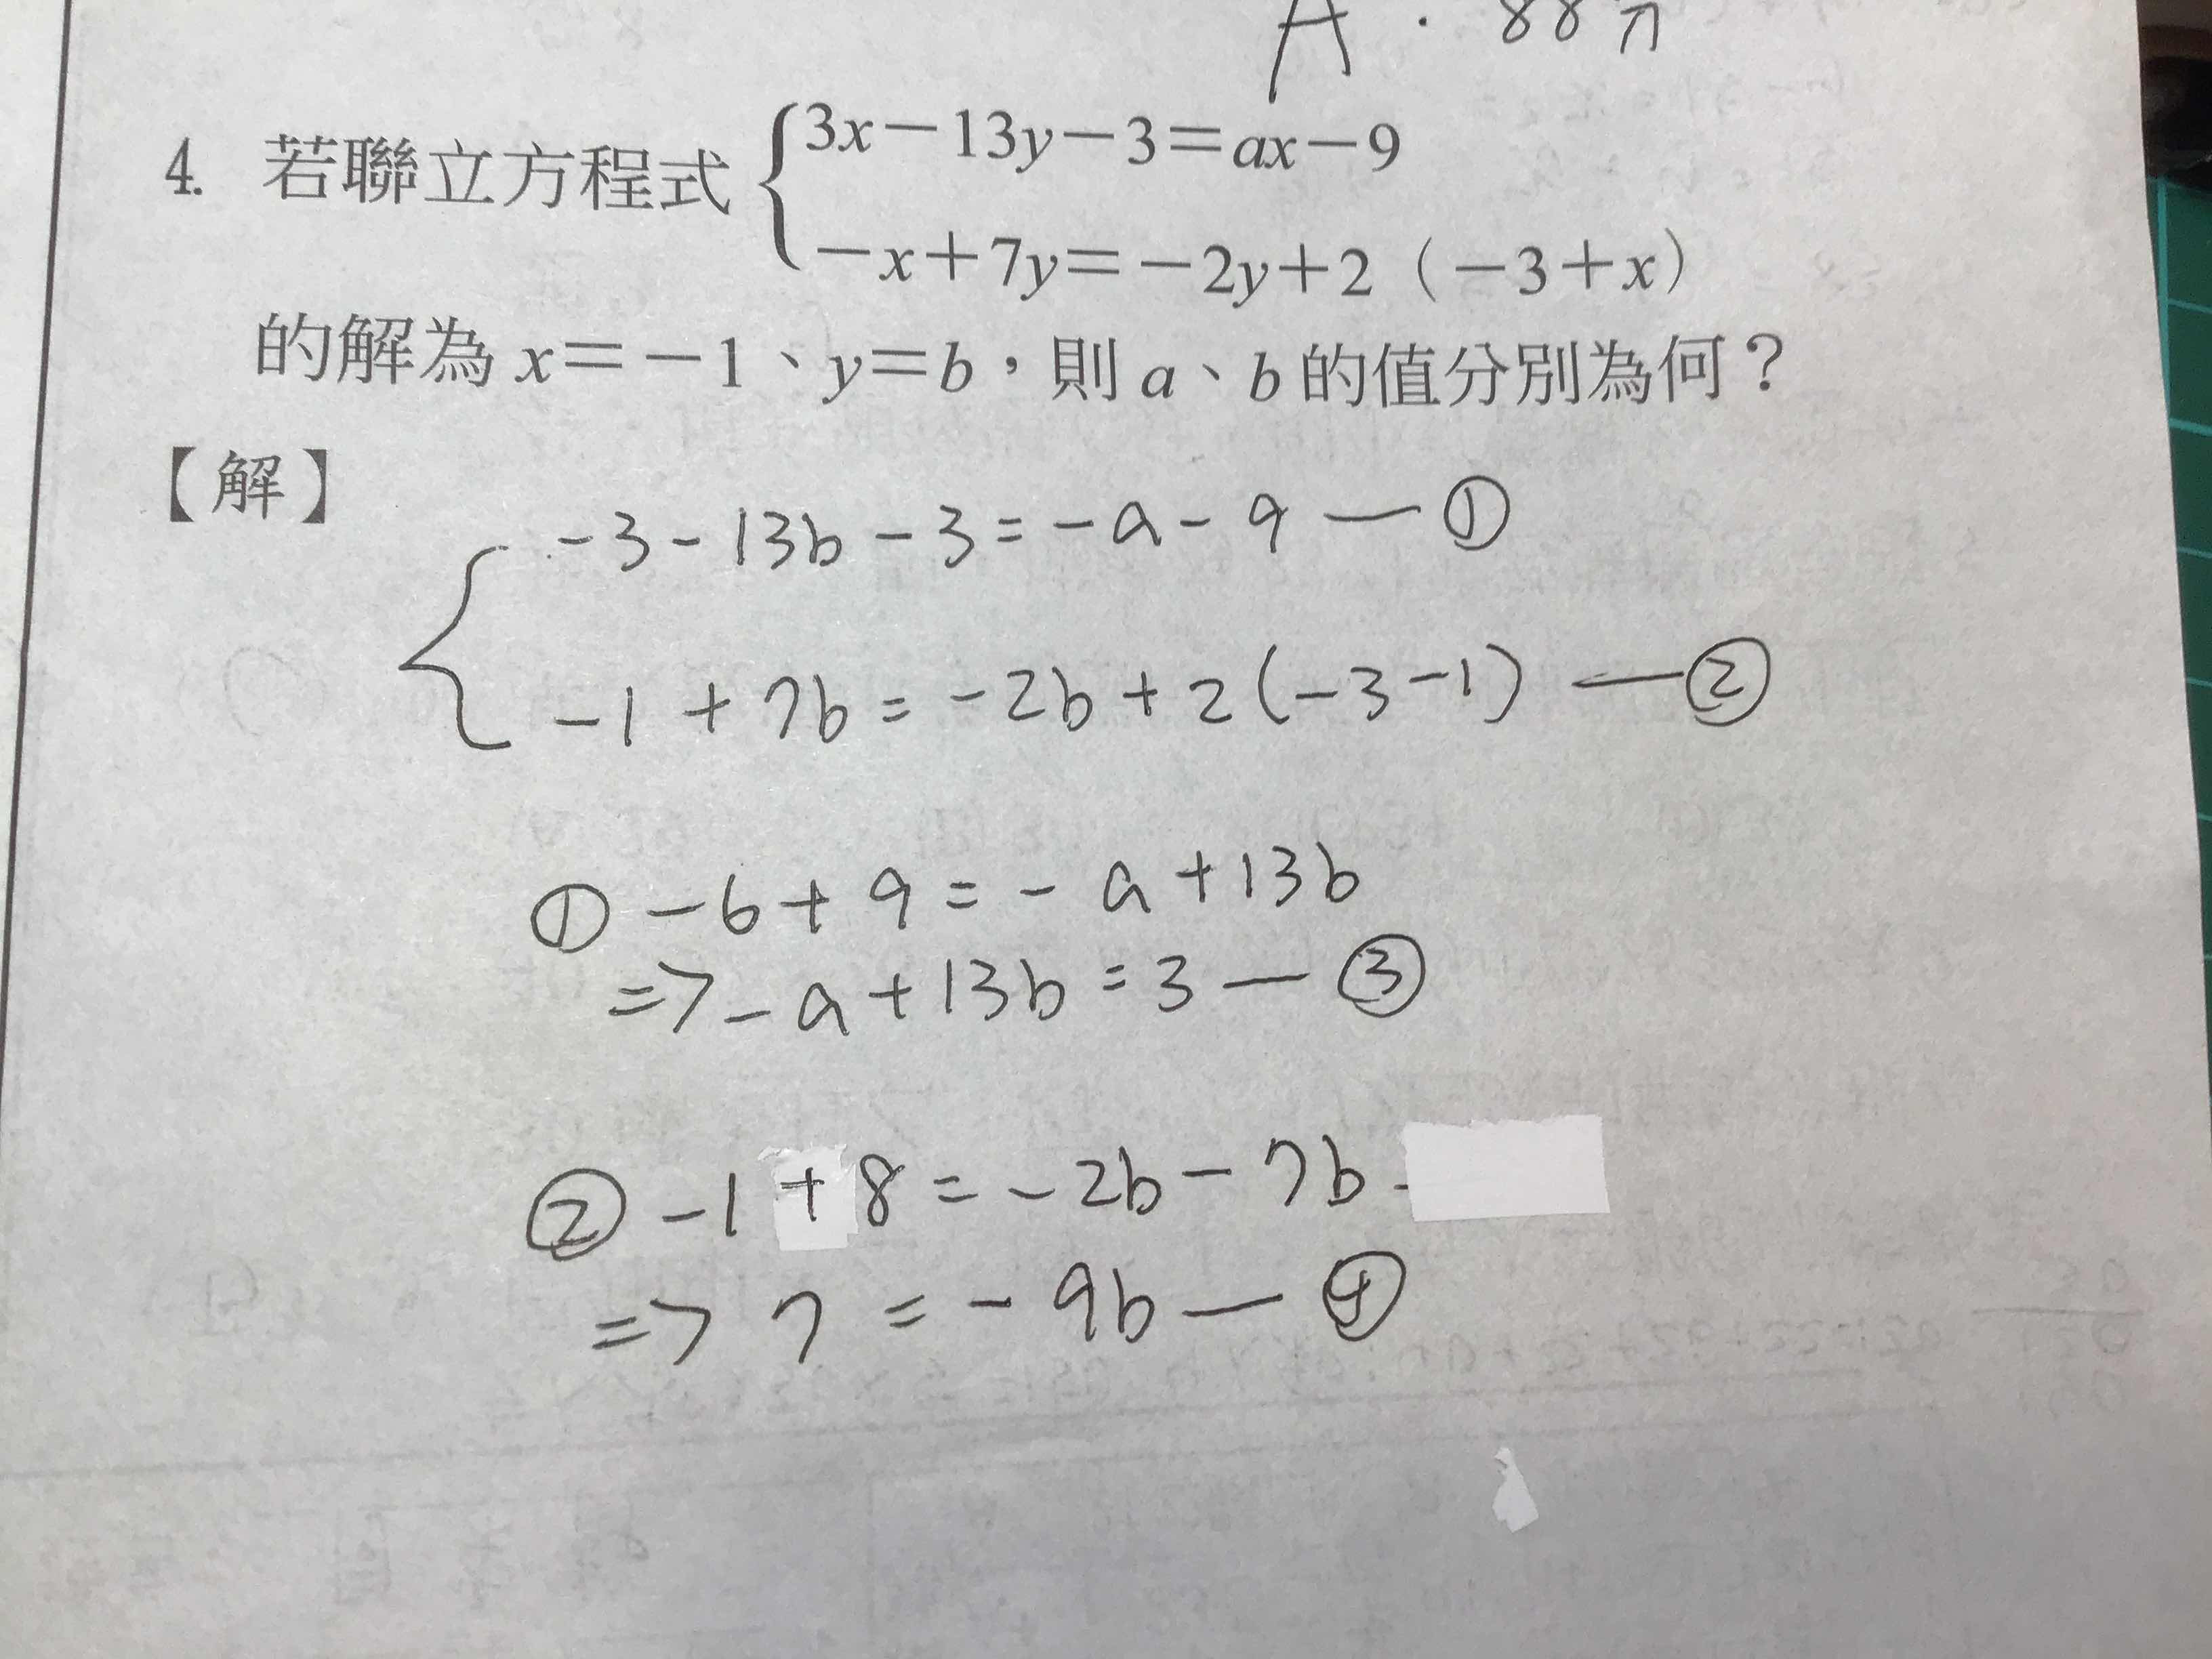 A. 88
4. 若聯立方程式 3x－13y－3＝ax－9
－x＋7y＝－2y＋2（－3＋x）
的解為 x＝－1、y＝b，則 a、b 的值分別為何？
【解】
-3-13b-3=-a-9—①
-1+7b=-2b+2(-3-1)—②
①-6+9=-a+13b
=>-a+13b=3—③
②-1+8=-2b-7b
=>7=-9b—④